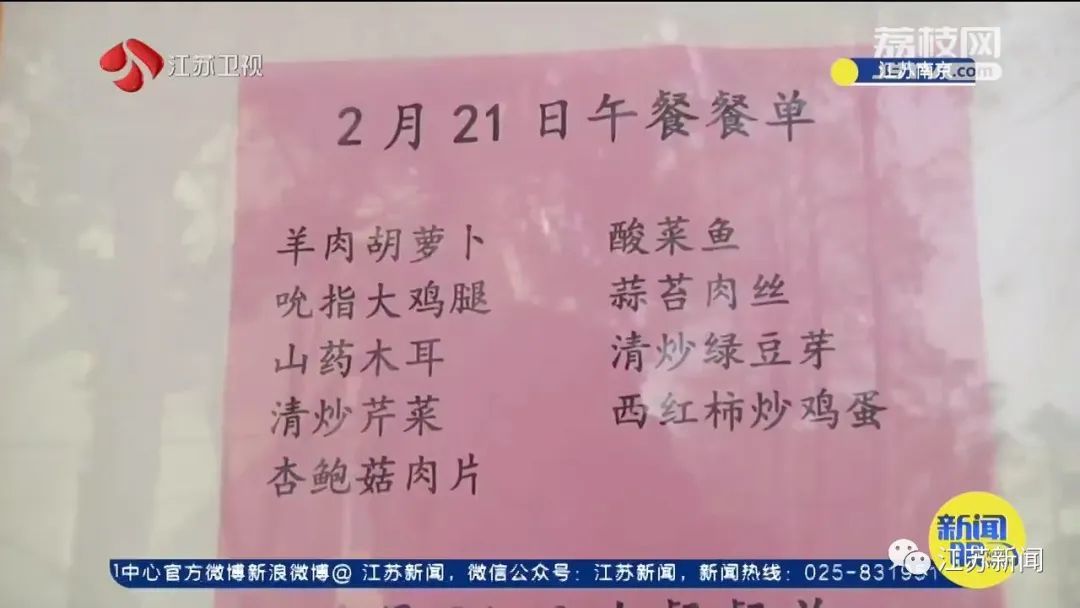 江苏卫视
荔枝网
江苏南京
2月21日午餐餐单
羊肉胡萝卜
酸菜鱼
吮指大鸡腿
蒜苔肉丝
山药木耳
清炒绿豆芽
清炒芹菜
西红柿炒鸡蛋
杏鲍菇肉片
新闻
江苏新闻
中心官方微博新浪微博@ 江苏新闻，微信公众号：江苏新闻，新闻热线：025-831951